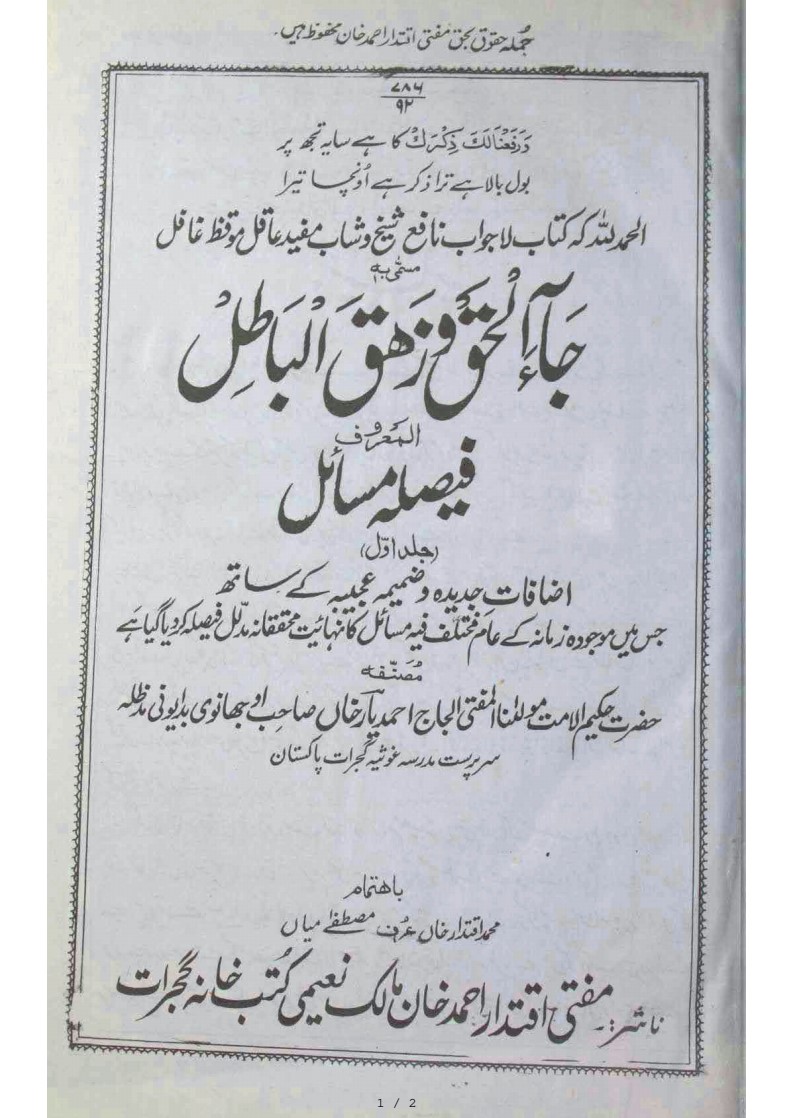 جُملہ حقوق بحق مفتی اقتدار احمد خان محفوظ ہیں۔
۷۸۶
۹۲
وَرَفَعْنَا لَكَ ذِكْرَكَ کا ہے سایہ تجھ پر
بول بالا ہے ترا ذکر ہے اُونچا تیرا
الحمد للہ کہ کتاب لاجواب نافع شیخ و شاب مفید عاقل موقظ غافل
مسمّٰی بہ
جَآءَ الْحَقُّ وَزَهَقَ الْبَاطِلُ
المعروف
فیصلہ مسائل
(جلد اوّل)
اضافاتِ جدیدہ و ضمیمہ عجیبہ کے ساتھ
جس میں موجودہ زمانہ کے عام مختلف فیہ مسائل کا نہائیت محققانہ مدلّل فیصلہ کر دیا گیا ہے
مُصَنّفہ
حضرت حکیم الامت مولٰنا المفتی الحاج احمد یار خاں صاحب اوجھانوی بدایونی مدظلہ
سرپرست مدرسہ غوثیہ گجرات پاکستان
باہتمام
محمد اقتدار خاں عرف مصطفےٰ میاں
ناشر:۔ مفتی اقتدار احمد خان مالک نعیمی کُتب خانہ گجرات
1 / 2